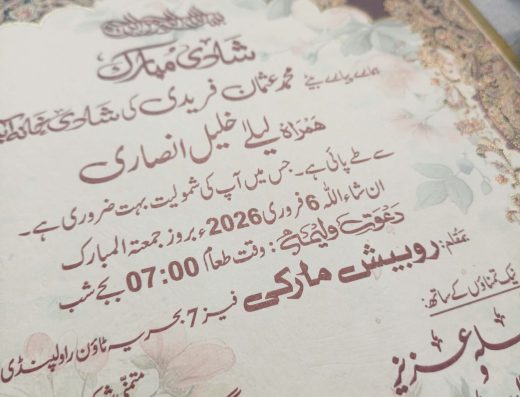 بسم اللہ الرحمن الرحیم
شادی مبارک
ہمارے پیارے بیٹے محمد عثمان فریدی کی شادی خانہ
ہمراہ لیلیٰ خلیل انصاری
سے طے پائی ہے۔ جس میں آپ کی شمولیت بہت ضروری ہے۔
ان شاءاللہ 6 فروری 2026ء بروز جمعۃ المبارک
دعوت ولیمہ: وقت طعام 07:00 بجے شب
بمقام: روبیش مارکی فیز 7 بحریہ ٹاؤن راولپنڈی
نیک تمناؤں کے ساتھ:
و عزیز
متمنی